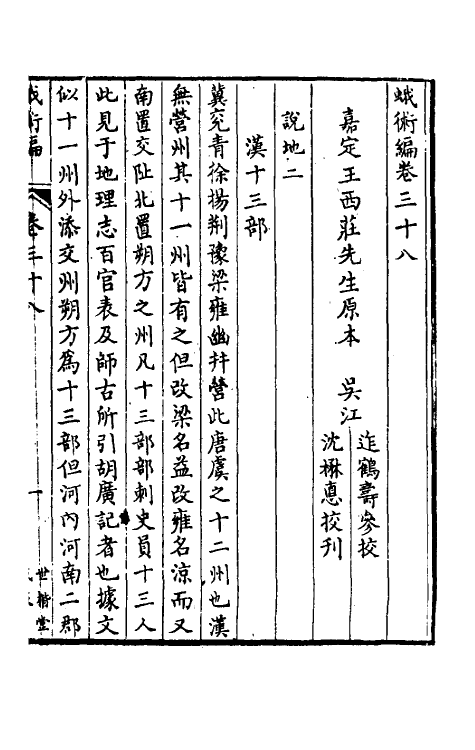 蛾術編卷三十八
嘉定王西莊先生原本　吳江
迮鶴壽參挍
沈楙悳挍刊
說地二
漢十三部
冀兗青徐揚荆豫梁雍幽幷營此唐虞之十二州也漢
無營州其十一州皆有之但改梁名益改雍名涼而又
南置交阯北置朔方之州凡十三部部刺史員十三人
此見于地理志百官表及師古所引胡廣記者也據文
似十一州外添交州朔方爲十三部但河內河南二郡
蛾術編
卷三十八
一
世楷堂